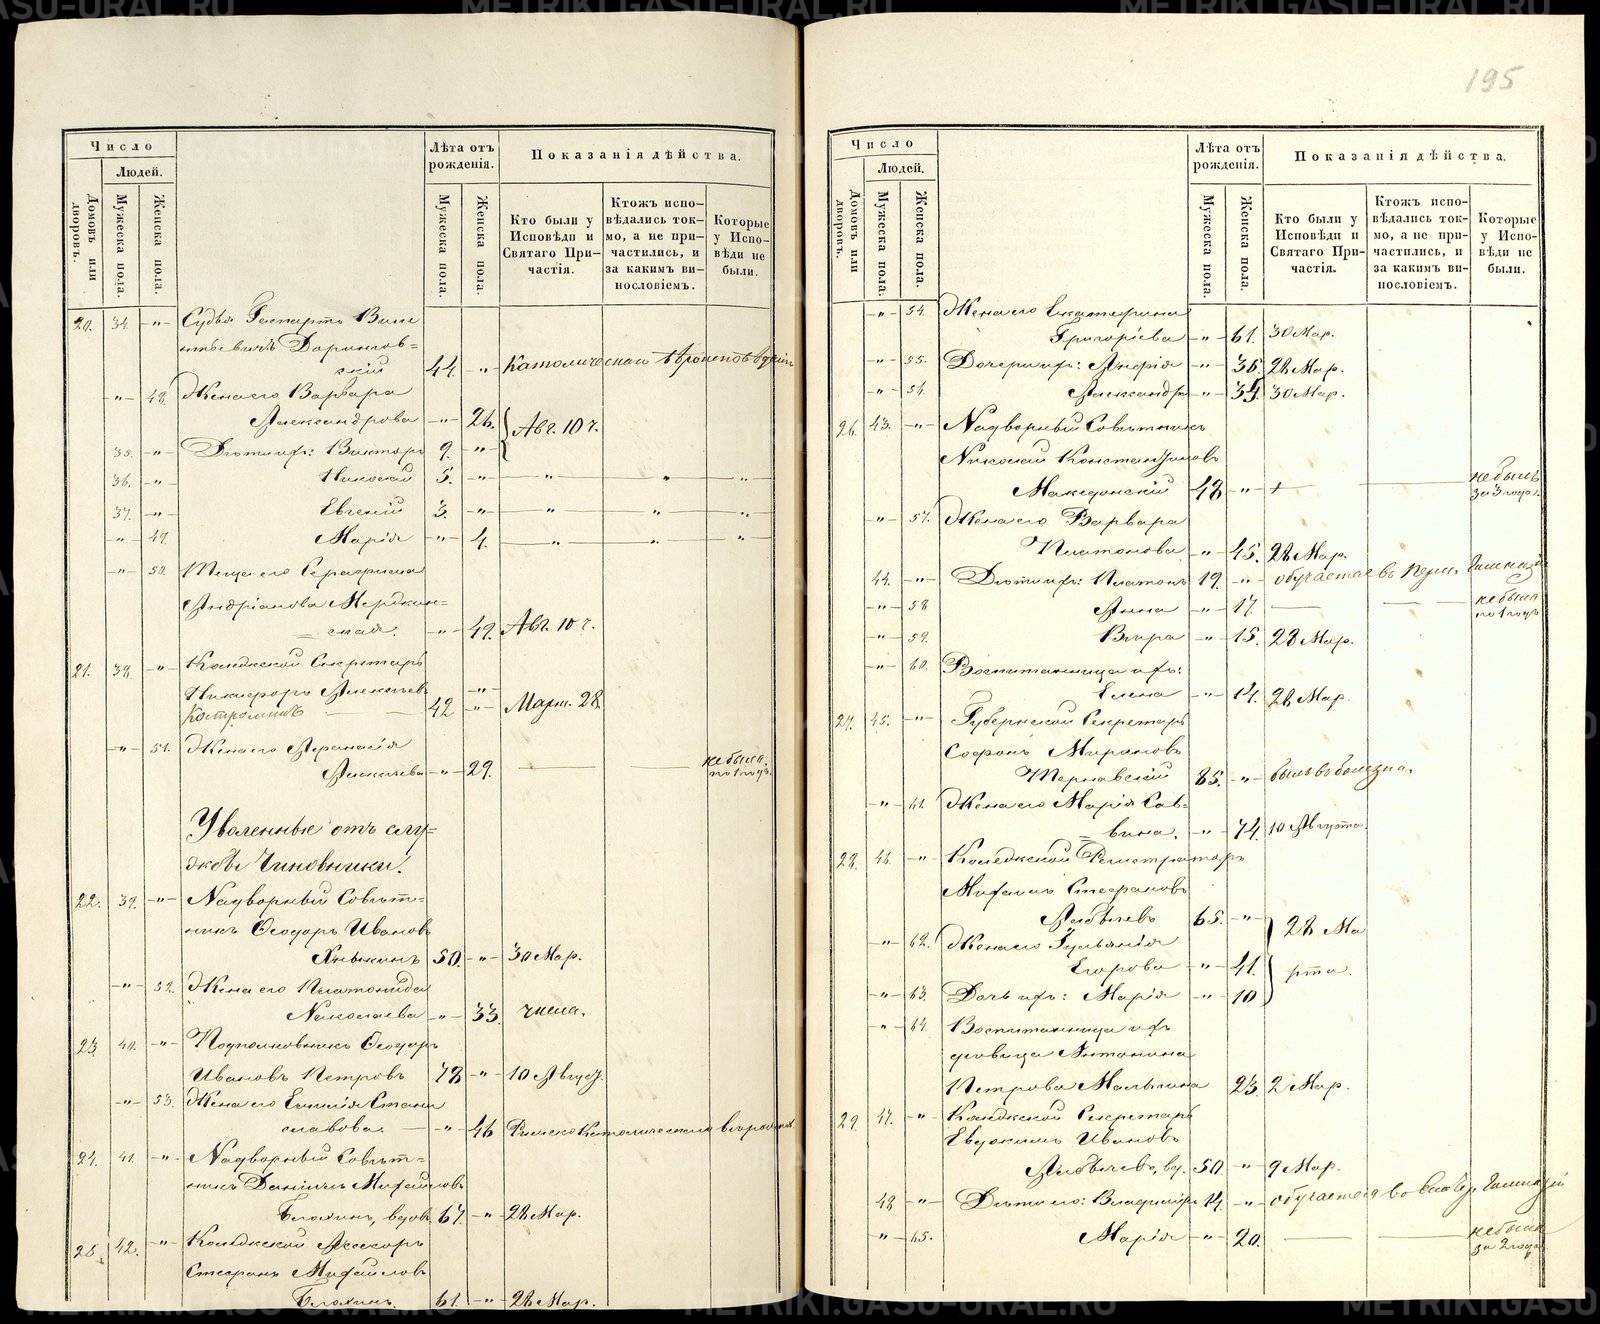 195
Число
Людей.
Домовъ или дворовъ.
Мужеска пола.
Женска пола.
Лѣта отъ рожденія.
Мужеска пола.
Женска пола.
Показанія дѣйства.
Кто были у Исповѣди и Святаго Причастія.
Ктожъ исповѣдались токмо, а не причастились, и за какимъ винословіемъ.
Которые у Исповѣди не были.
20. 34. -"- Судья
44. -"- Католическаго вѣроисповѣданія
-"- 48. Жена его Варвара
Александрова -"- 26. Авг. 10 ч.
35. -"- Дѣти ихъ: Викторъ 9. -"-
36. -"- Николай 5. -"- -"- " -"-
37. -"- Евгеній 3. -"- -"- " -"-
-"- 49. Марія -"- 4. -"- -"- -"-
-"- 50. Теща его Серафима
Андріанова
ская. -"- 49. Авг. 10 ч.
21. 38. -"- Колежской Секретарь
Никифоръ Алексѣев
Костроминъ 42 -"- Март. 28.
-"- 51. Жена его Афанасія
Алексѣева -"- 29. не была
по 1 годъ.
Уволенные отъ слу=
жбы Чиновники:
22. 39. -"- Надворный Совѣт=
никъ Ѳеодоръ Ивановъ
50. -"- 30 Мар.
-"- 52. Жена его Платонида
Николаева -"- 33. числа.
23. 40. -"- Подполковникъ Ѳеодоръ
Ивановъ Петровъ 78 -"- 10 Август.
-"- 53. Жена его Емилія Стани
славова. -"- 46 Римско Католическаго
24. 41. -"- Надворный Совѣт=
никъ Даніилъ Михайловъ
Блохинъ, вдовъ 67. -"- 28 Мар.
25. 42. -"- Колежской Асесоръ
Стефанъ Михайловъ
Блохинъ. 61. -"- 28 Мар.
Число
Людей.
Домовъ или дворовъ.
Мужеска пола.
Женска пола.
Лѣта отъ рожденія.
Мужеска пола.
Женска пола.
Показанія дѣйства.
Кто были у Исповѣди и Святаго Причастія.
Ктожъ исповѣдались токмо, а не причастились, и за какимъ винословіемъ.
Которые у Исповѣди не были.
-"- 54. Жена его Екатерина
Григорьева -"- 61. 30 Мар.
-"- 55. Дочери ихъ: -"- 36. 28 Мар.
-"- 56. Александра -"- 30 Мар.
26. 43. -"- Надворный Совѣтникъ
Николай Константиновъ
Македонскій 48 -"- не былъ
за 3 года.
-"- 57. Жена его Варвара
Платонова -"- 45. 28 Мар.
44. -"- Дѣти ихъ: Платонъ 19. -"- обучается въ Перм. Гимназіи
-"- 58 Анна -"- 17. не была
по 1 годъ
-"- 59. Вѣра -"- 15. 28 Мар.
-"- 60. Воспитанница ихъ:
Елена -"- 14. 28 Мар.
27. 45. -"- Губернской Секретарь
Софонъ Мироновъ
Тернавскій 85. -"- былъ въ болезни.
-"- 61. Жена его Марія Сав=
вина. -"- 74. 10 Августа.
28. 46. -"- Колежской Регистраторъ
Михаилъ Стефановъ
65. -"- 28 Ма
-"- 62. Жена его Гульянія
Егорова -"- 41. рта.
-"- 63. Дочь ихъ: Марія -"- 10
-"- 64. Воспитанница ихъ
дѣвица Антонина
Петрова 23. 2 Мар.
29. 47. -"- Колежской Секретарь
Евдокимъ Ивановъ
вд. 50. -"- 9 Мар.
48 -"- Дѣти его: Владиміръ 14. -"- обучается во Гимназіи
-"- 65. Марія -"- 20. не была
за 2 года
METRIKI.GASU-URAL.RU